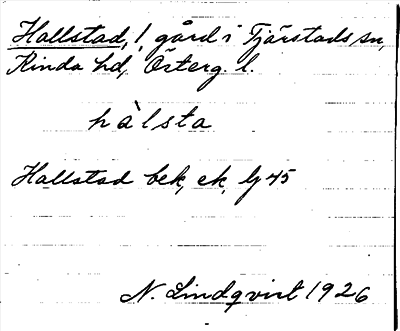 Hallstad, 1 gård i Tjärstads sn,
Kinda hd, Österg. l.
hàlsta
Hallstad bek, ek, bg 45
N. Lindqvist 1926